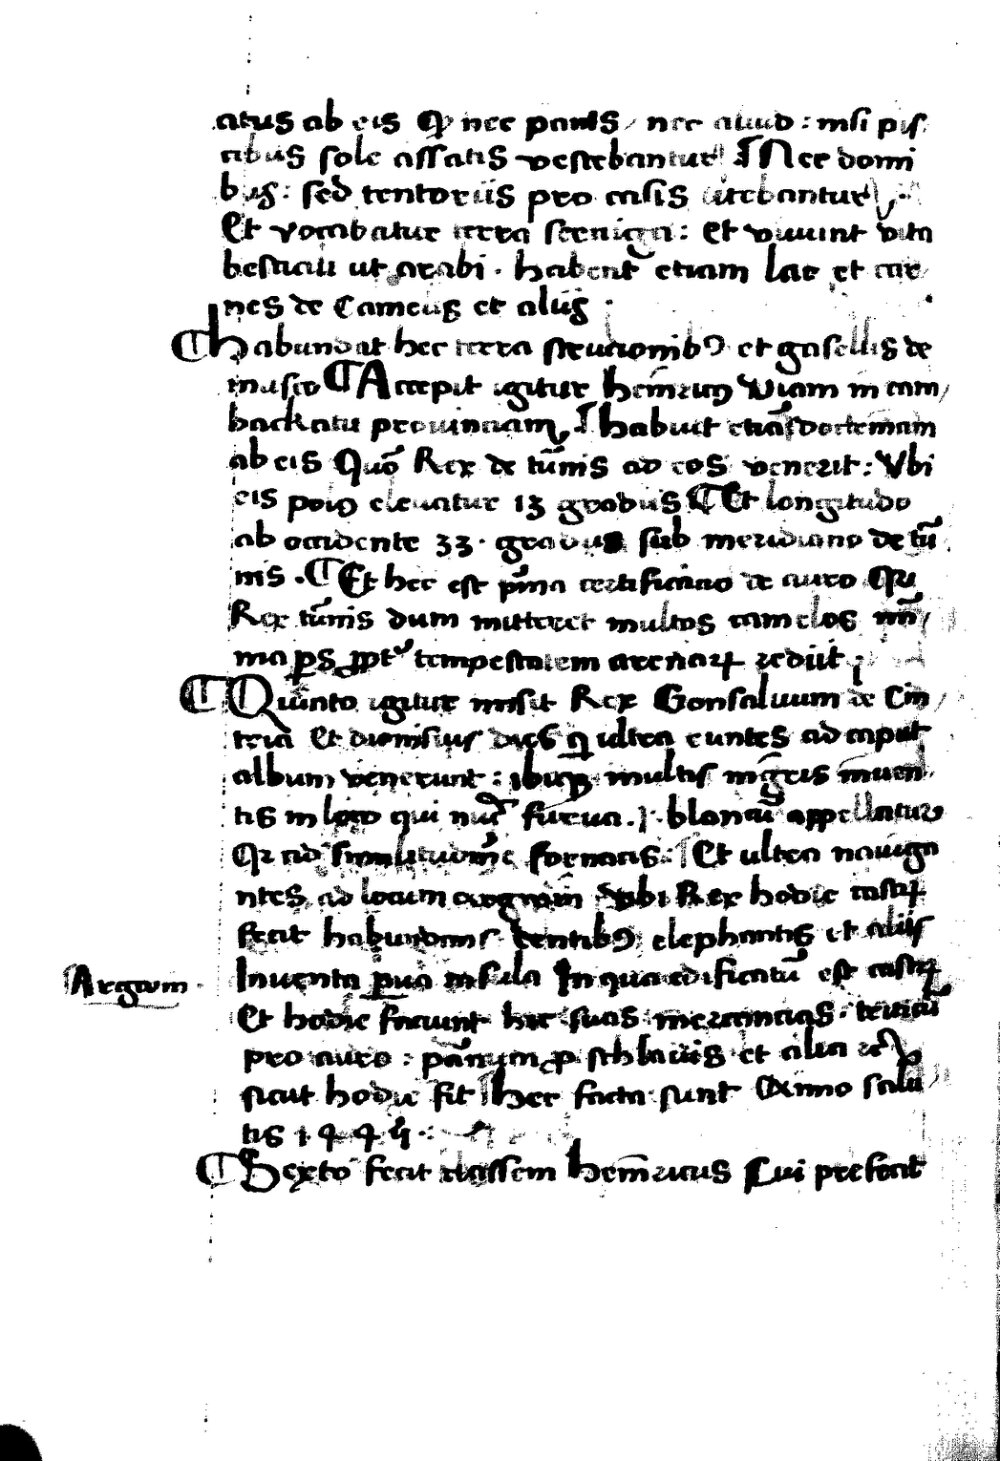 atus ab eis Qd nec panis / nec aliud : nisi pis
cibus sole assatis vescebantur Nec domi
bus : sed tentoriis pro casis utebantur
Et vocabatur terra seeniga : et vivunt vita
bestiali ut arabi . habent etiam lac et car
nes de Camelis et aliis
habundat hec terra strucionibus et gasellis de
musco Accepit igitur henricus viam in cam/
backatu provinciam, habuit etiam
ab eis Quo Rex de tunis ad eos venerit : Ubi
eis polus elevatur 13 gradus Et longitudo
ab occidente 33 . gradus sub meridiano de tu
nis . Et hec est prima certificacio de auro Qr
Rex tunis dum mitteret multos camelos
tempestatem arenarum rediit .
Quinto igitur misit Rex Gonsaluum de Cin/
tria et dionisius dies qui ultra euntes ad caput
album venerunt : ibique multis nigris inven
tis in loco qui nunc furua . blancum appellatur
Qr ad similitudinem fornacis : Et ultra naviga
ntes ad locum argrum ubi Rex hodie castrum
fecit habundans dentibus elephantis et aliis
Argum
Inventa parva insula In qua edificatum est castrum
Et hodie faciunt hic suas mercancias . triticum
pro auro : pannum pro schlavis et alia
sicut hodie fit hec facta sunt Anno salu
tis 144
Sexto fecit classem henricus Cui prefecit